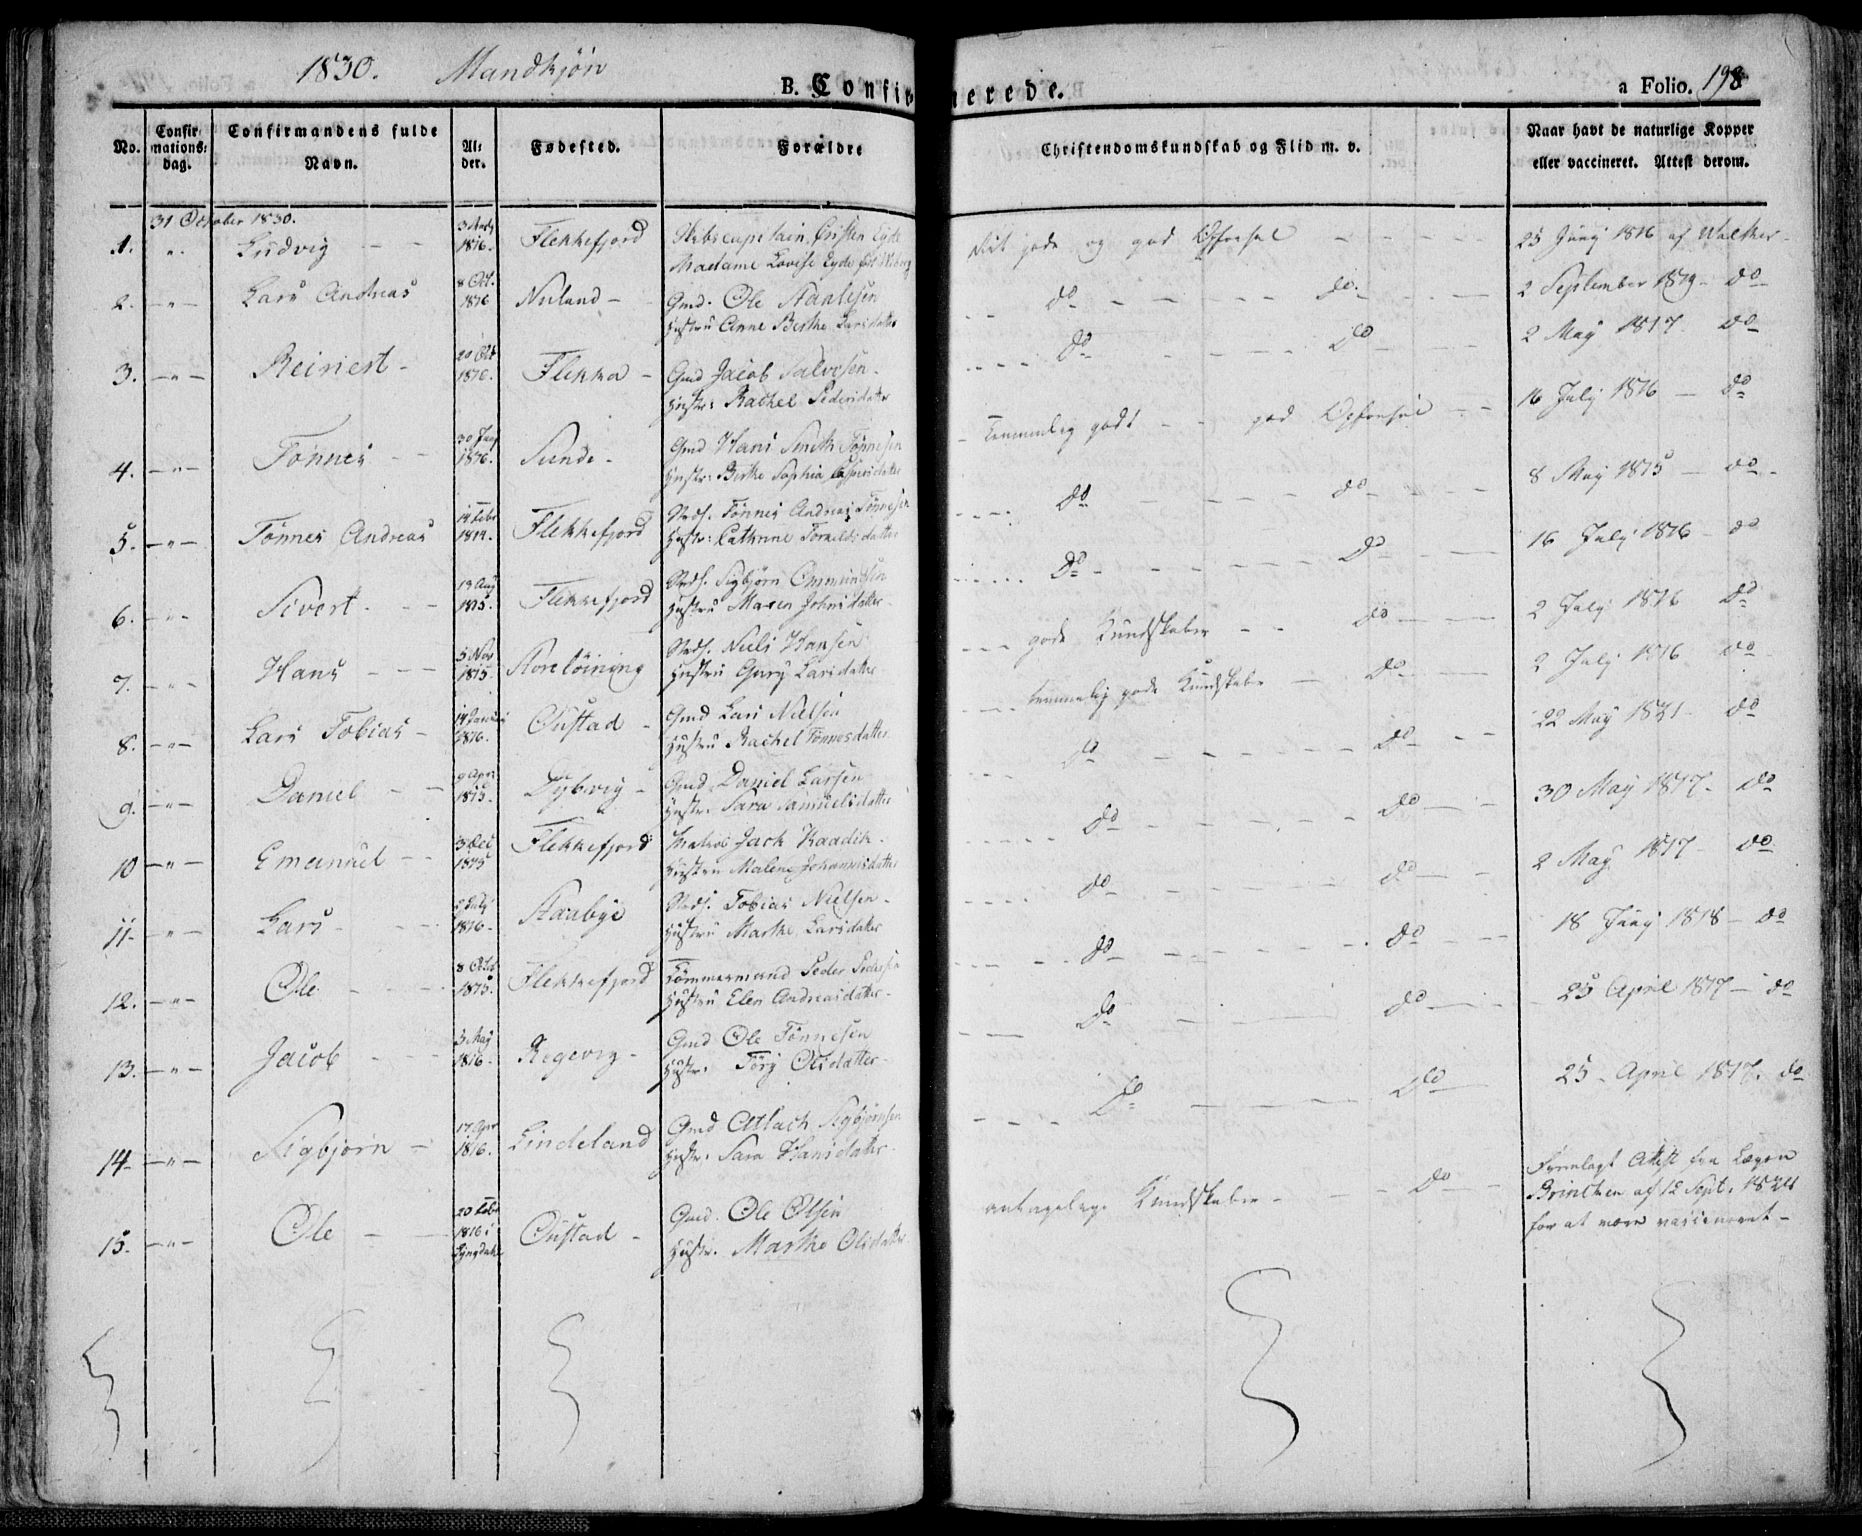 1830. Mandkjøn
B. Confirmerede.
a Folio. 198
No.
Confirmations:dag.
Confirmandens fulde Navn.
Alder.
Fødested.
Forældre
Christendomskundskab og Flid m. v.
Naar havt de naturlige Kopper eller vaccineret. Attest derom.
31 October 1830.
1. Ludvig 1816. Flekkefjord Skibscapitain Cristen Eyde
Madame Lovise Eyde
god Opførsel 25 Juny 1816 af Walker
2. Lars Andreas 8 Oct. 1816 Nuland Gmd. Ole Stanlesen
Hustru Anne Berthe Larsdatter
do do. 2 September 1819 do
3. Reinert 20 Oct 1816. Flikka Gmd Jacob Salvesen
Hustr: Rachel Pedersdatter
do do 2 May 1817 do
4. Tønnes 1816. Sunde Gmd Hans Smith Tønnesen
Hustr: Berthe Sophia
temmelig godt god Opførsel 16 July 1816 do
5. Tønnes Andreas 14 Febr 1814. Flekkefjord Strds. Tønnes Andreas Tønnesen
Hustr: Cathrine Torkildsdatter
do do 8 May 1815 do
6. Sivert 19 Aug 1815. Flekkefjord Strds. Sigbjørn Ommundsen
Hustru Maren Johnsdatter
Do Do 16 July 1816 do
7. Hans 5 Nov 1815. Strds. Niels Hansen
Hustru Gury Larsdatter
gode Kundskaber do 2 July 1816 do
8. Lars Tobias 1816. Oustad Gmd Lars Nielsen
Hustru Rachel Tønnesdatter
temmelig gode Kundskaber Do 2 July 1816 do
9. Daniel 9 Apr 1815. Dybvig Gmd. Daniel Larsen
Hustr. Sara Samuelsdatter
do do 22 May 1821 do
10 Emanuel 3 Dec 1815 Flekkefjord Matros Jack
Hustru Malene Johannesdatter
do do 30 May 1817 do
11. Lars 2 July 1816 Strds. Tobias Nielsen
Hustru Marthe Larsdatter
do do 2 May 1817 do
12. Ole 8 Octb 1815. Flekkefjord Tømmermand Peder Pedersen
Hustru Elen Andreasdatter
do do 18 Juny 1818 do
13. Jacob 5 May 1816. Regevig Gmd Ole Tønnesen
Hustr. Olsdatter
do do 25 April 1817 do
14. Sigbjørn 17 Apr 1816. Lindeland Gmd Atlack Sigbjørnsen
Hustr. Sara Hansdatter
do do 25 April 1817. do
15. Ole 20 Febr 1816 i Lyngdal Oustad Gmd. Ole Olsen
Hustr. Marthe Olsdatter
antagelige Kundskaber Do Fremlagt Attest fra Lægen
af 12 Sept. 1824
for at være vaccineret